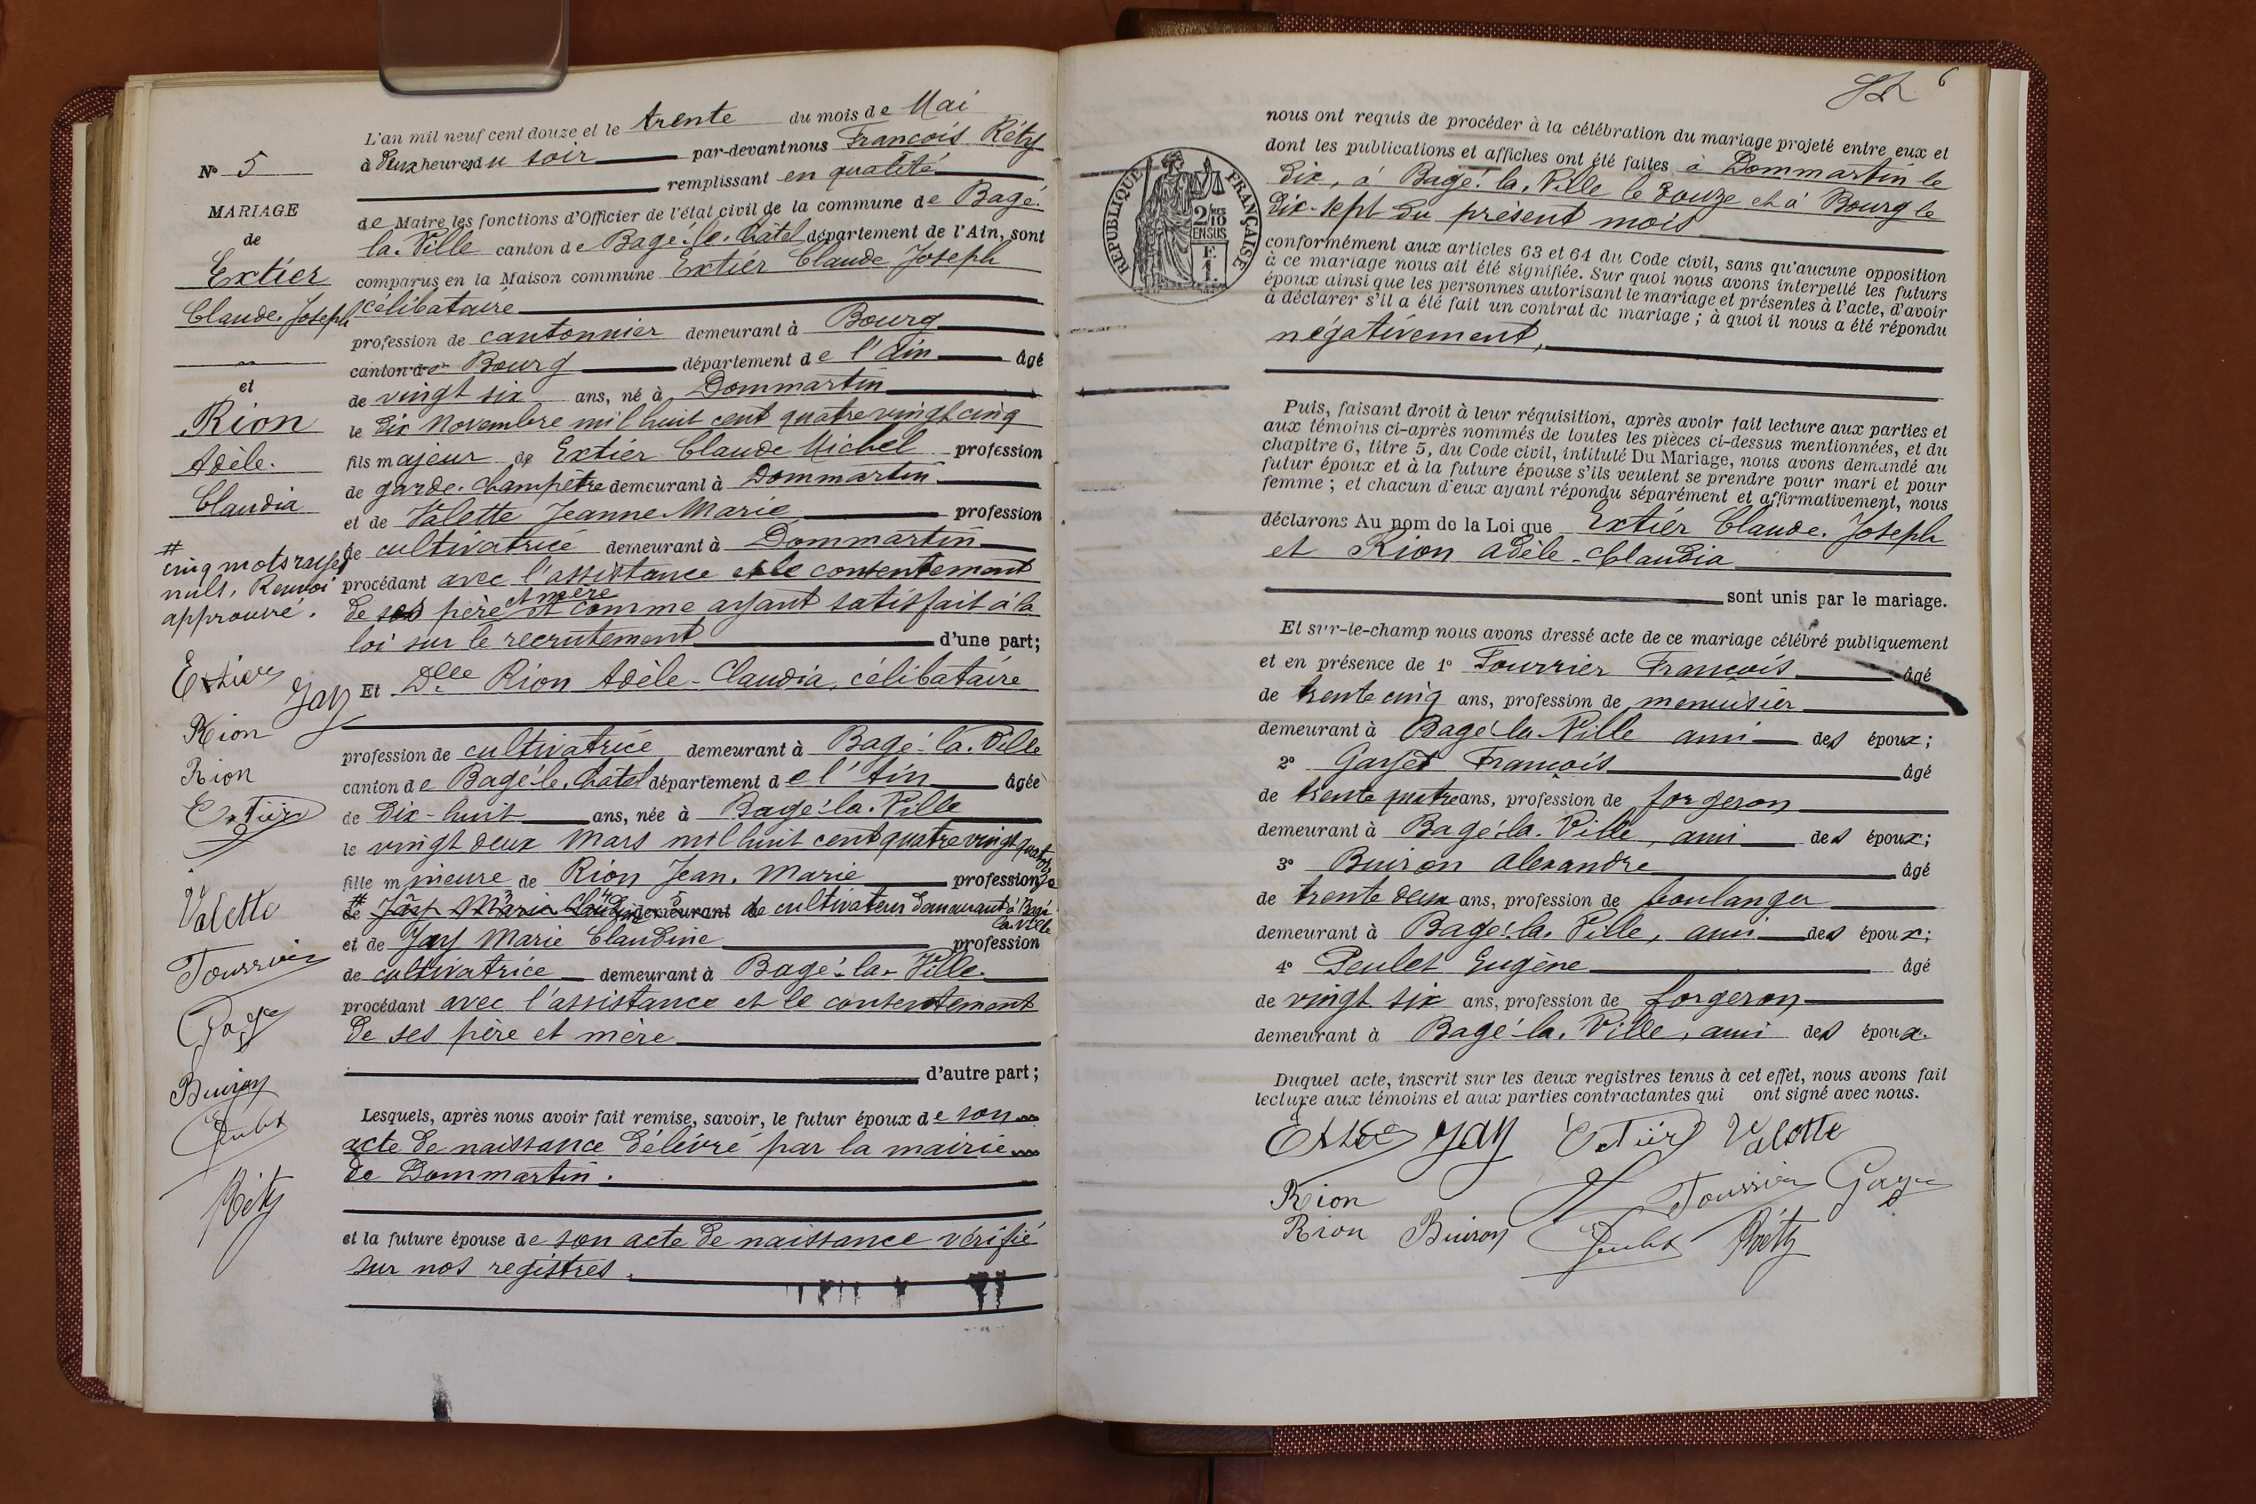 L'an mil neuf cent douze et le trente du mois de Mai
à deux heures du soir par-devant nous François Réty
remplissant en qualité
de Maire les fonctions d'Officier de l'état civil de la commune de Bagé-
la-Ville canton de Bagé-le-Châtel département de l'Ain, sont
comparus en la Maison commune Extier Claude Joseph
célibataire
profession de cantonnier demeurant à Bourg
canton de Bourg département de l'Ain âgé
de vingt six ans, né à Dommartin
le dix Novembre mil huit cent quatre vingt cinq
fils majeur de Extier Claude Michel profession
de garde-champêtre demeurant à Dommartin
et de Valette Jeanne Marie profession
de cultivatrice demeurant à Dommartin
procédant avec l'assistance et le consentement
de ses père et mère et comme ayant satisfait à la
loi sur le recrutement d'une part;
Et Dlle Rion Adèle-Claudia, célibataire
profession de cultivatrice demeurant à Bagé-la-Ville
canton de Bagé-le-Châtel département de l'Ain âgée
de dix-huit ans, née à Bagé-la-Ville
le vingt deux Mars mil huit cent quatre vingt quatorze
fille mineure de Rion Jean-Marie profession
# de Jay Marie Claudine demeurant de cultivateur demeurant à Bagé-
la-Ville
et de Jay Marie Claudine profession
de cultivatrice demeurant à Bagé-la-Ville
procédant avec l'assistance et le consentement
de ses père et mère
d'autre part;
Lesquels, après nous avoir fait remise, savoir, le futur époux de son
acte de naissance délivré par la mairie
de Dommartin.
et la future épouse de son acte de naissance vérifié
sur nos registres.
No 5
MARIAGE
de
Extier
Claude-Joseph
et
Rion
Adèle-
Claudia
#
cinq mots rayés
nuls, Renvoi
approuvé.
Extier
Jay
Rion
Rion
Extier
Valette
Fourrier
Gayet
Buiron
Peulet
Réty
6
nous ont requis de procéder à la célébration du mariage projeté entre eux et
dont les publications et affiches ont été faites à Dommartin le
dix, à Bagé-la-Ville le douze et à Bourg le
dix-sept du présent mois
conformément aux articles 63 et 64 du Code civil, sans qu'aucune opposition
à ce mariage nous ait été signifiée. Sur quoi nous avons interpellé les futurs
époux ainsi que les personnes autorisant le mariage et présentes à l'acte, d'avoir
à déclarer s'il a été fait un contrat de mariage; à quoi il nous a été répondu
négativement,
RÉPUBLIQUE FRANÇAISE
2/10
EN SUS
F.
1.
Puis, faisant droit à leur réquisition, après avoir fait lecture aux parties et
aux témoins ci-après nommés de toutes les pièces ci-dessus mentionnées, et du
chapitre 6, titre 5, du Code civil, intitulé Du Mariage, nous avons demandé au
futur époux et à la future épouse s'ils veulent se prendre pour mari et pour
femme; et chacun d'eux ayant répondu séparément et affirmativement, nous
déclarons Au nom de la Loi que Extier Claude-Joseph
et Rion Adèle-Claudia
sont unis par le mariage.
Et sur-le-champ nous avons dressé acte de ce mariage célébré publiquement
et en présence de 1o Fourrier François âgé
de trente cinq ans, profession de menuisier
demeurant à Bagé-la-Ville ami des époux;
2o Gayet François âgé
de trente quatre ans, profession de forgeron
demeurant à Bagé-la-Ville, ami des époux;
3o Buiron Alexandre âgé
de trente deux ans, profession de boulanger
demeurant à Bagé-la-Ville, ami des époux;
4o Peulet Eugène âgé
de vingt six ans, profession de forgeron
demeurant à Bagé-la-Ville, ami des époux.
Duquel acte, inscrit sur les deux registres tenus à cet effet, nous avons fait
lecture aux témoins et aux parties contractantes qui ont signé avec nous.
Extier Jay Extier Valette
Rion Fourrier Gayet
Rion Buiron Peulet Réty